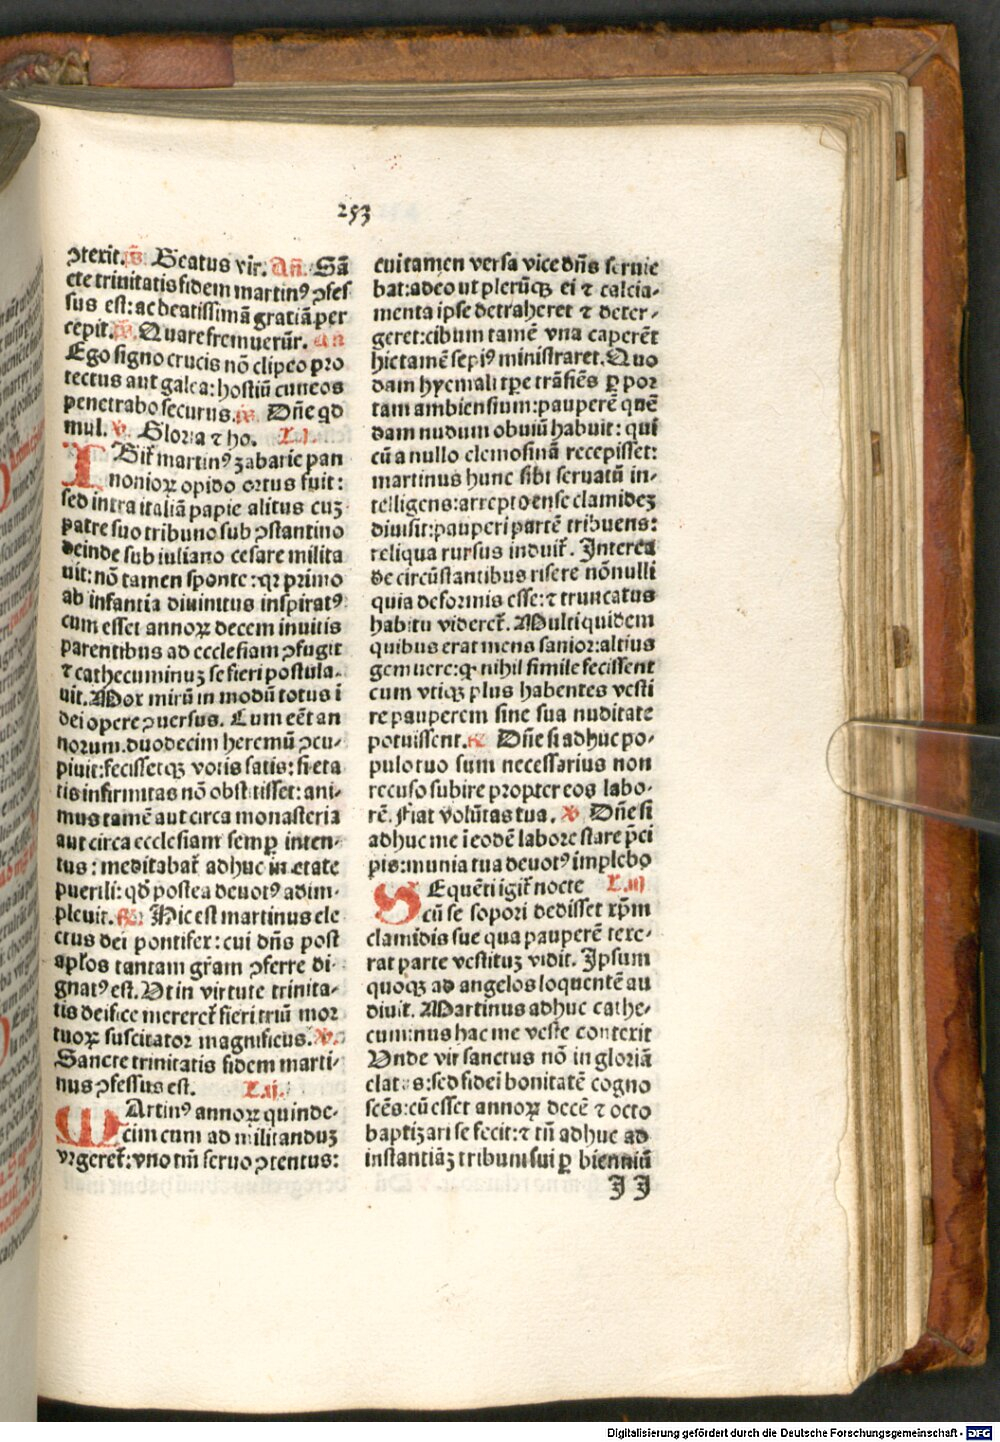 253
ꝯtexit. p̃s. Beatus vir. Añ. Sã
cte trinitatis fidem martinꝰ ꝯfes
sus est: ac beatissimã gratiã per
cepit. p̃s. Quare fremuerũt. An
Ego signo crucis nõ clipeo pro
tectus aut galea: hostiũ cuneos
penetrabo securus. p̃s. Dñe qd
mul. ℣. Gloria ⁊ ho. L.i.
IGit̃ martinꝰ zabarie pan
nonioꝝ opido ortus fuit:
sed intra italiã papie alitus cuꝫ
patre suo tribuno sub ꝯstantino
deinde sub iuliano cesare milita
uit: nõ tamen sponte: qꝛ primo
ab infantia diuinitus inspiratꝰ
cum esset annoꝝ decem inuitis
parentibus ad ecclesiam ꝯfugit
⁊ cathecuminuꝫ se fieri postula-
uit. Mox mirũ in modũ totus ĩ
dei opere ꝯuersus. Cum eẽt an
norum duodecim heremũ ꝯcu-
piuit: fecissetqꝫ votis satis: si eta
tis infirmitas nõ obstitisset: ani-
mus tamẽ aut circa monasteria
aut circa ecclesiam semꝑ inten-
tus: meditabat̃ adhuc in etate
puerili: qd̃ postea deuotꝰ adim-
pleuit. ℟. Hic est martinus ele
ctus dei pontifex: cui dñs post
apl̃os tantam gr̃am ꝯferre di-
gnatꝰ est. Ut in virtute trinita-
tis deifice mereret̃ fieri triũ mor
tuoꝝ suscitator magnificus. ℣.
Sancte trinitatis fidem marti-
nus ꝯfessus est. L.ij.
MArtinꝰ annoꝝ quinde-
cim cum ad militanduꝫ
vrgeret̃: vno tm̃ seruo ꝯtentus:
cui tamen versa vice dñs seruie
bat: adeo ut plerũqꝫ ei ⁊ calcia-
menta ipse detraheret ⁊ deter-
geret: cibum tamẽ vna caperẽt
hic tamẽ sepiꝰ ministraret. Quo
dam hyemali tꝑe trãsiẽs ꝑ por
tam ambiensium: pauperẽ quẽ
dam nudum obuiũ habuit: qui
cũ a nullo elemosinã recepisset:
martinus hunc sibi seruatũ in-
telligens: arrepto ense clamideꝫ
diuisit: pauperi partẽ tribuens:
reliqua rursus induit̃. Interea
de circũstantibus risere nõnulli
quia deformis esse: ⁊ truncatus
habitu videret̃. Multi quidem
quibus erat mens sanior: altius
gemuere: ꝙ nihil simile fecissent
cum vtiqꝫ plus habentes vesti
re pauperem sine sua nuditate
potuissent. ℟. Dñe si adhuc po-
pulo tuo sum necessarius non
recuso subire propter eos labo-
rẽ. Fiat volũtas tua. ℣. Dñe si
adhuc me ĩ eodẽ labore stare p̃ci
pis: munia tua deuotꝰ implebo
SEquẽti igit̃ nocte L.iij
cũ se sopori dedisset xp̃m
clamidis sue qua pauperẽ texe-
rat parte vestituꝫ vidit. Ipsum
quoqꝫ ad angelos loquentẽ au
diuit. Martinus adhuc cathe-
cuminus hac me veste contexit
Unde vir sanctus nõ in gloriã
elatus: sed fidei bonitatẽ cogno
scẽs: cũ esset annoꝝ decẽ ⁊ octo
baptizari se fecit: ⁊ tñ adhuc ad
instantiãꝫ tribuni sui ꝑ bienniũ
JJ
Digitalisierung gefördert durch die Deutsche Forschungsgemeinschaft - DFG